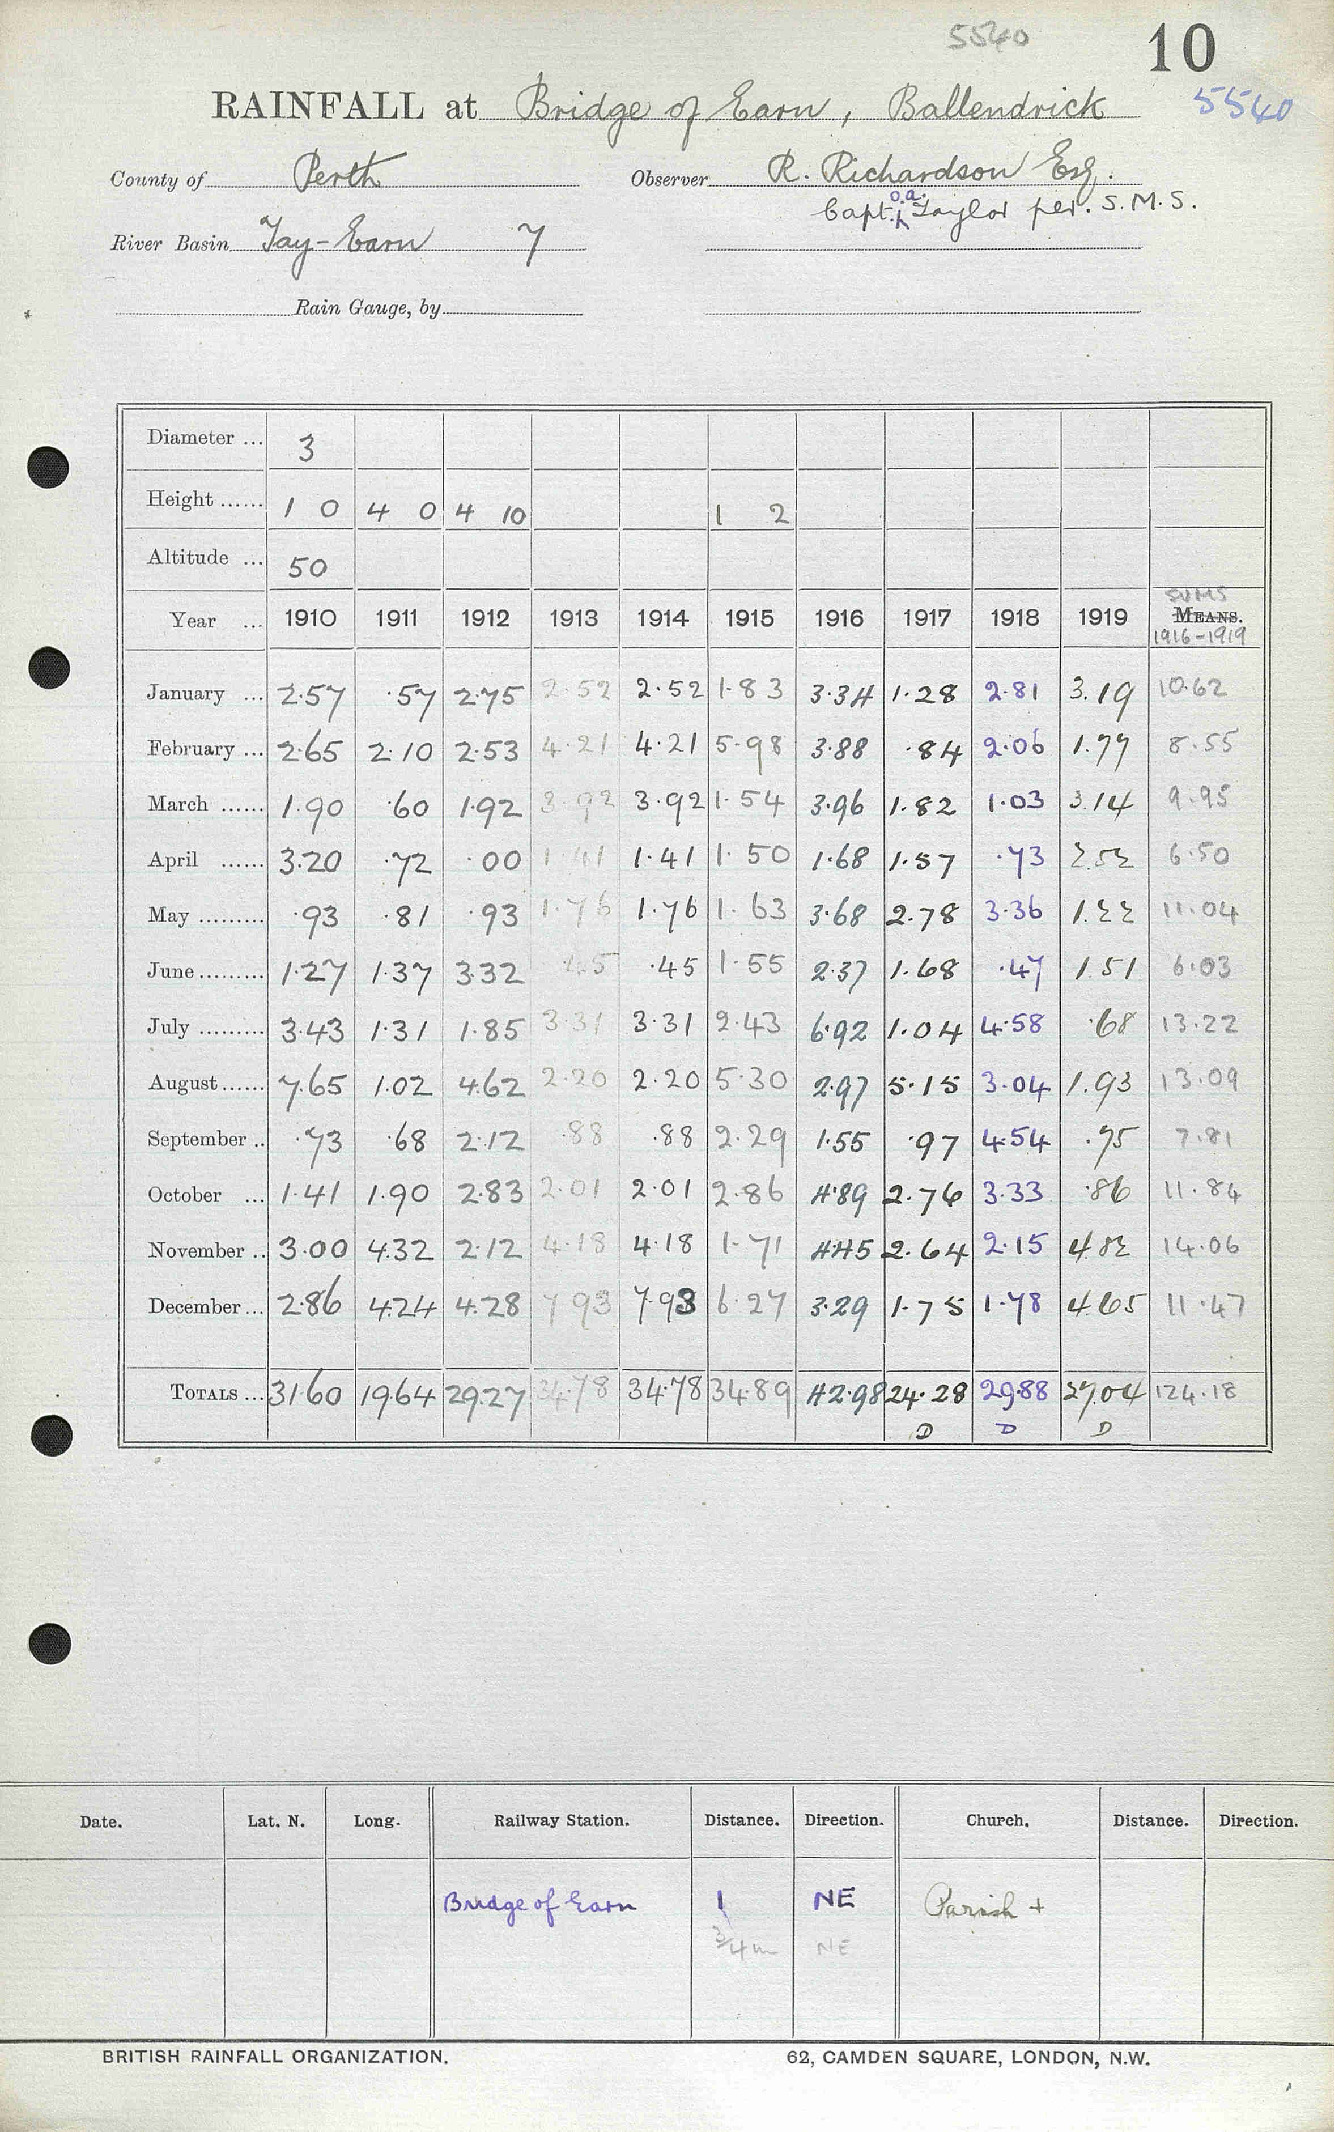 5540
10
RAINFALL at Bridge of Earn, Ballendrick 5540
County of Perth Observer R. Richardson Esq.
o.a.
Capt. Taylor per. S.M.S.
River Basin Tay-Earn 7
Rain Gauge, by
Diameter ... 3
Height ...... 1 0 4 0 4 10 1 2
Altitude ... 50
SUMS
Year ... 1910 1911 1912 1913 1914 1915 1916 1917 1918 1919 MEANS.
1916-1919
January ... 2.57 .57 2.75 2.52 2.52 1.83 3.34 1.28 2.81 3.19 10.62
February ... 2.65 2.10 2.53 4.21 4.21 5.98 3.88 .84 2.06 1.77 8.55
March ...... 1.90 .60 1.92 3.92 3.92 1.54 3.96 1.82 1.03 3.14 9.95
April ...... 3.20 .72 .00 1.41 1.41 1.50 1.68 1.57 .73 2.52 6.50
May ......... .93 .81 .93 1.76 1.76 1.63 3.68 2.78 3.36 1.22 11.04
June ......... 1.27 1.37 3.32 .45 .45 1.55 2.37 1.68 .47 1.51 6.03
July ......... 3.43 1.31 1.85 3.31 3.31 2.43 6.92 1.04 4.58 .68 13.22
August ...... 7.65 1.02 4.62 2.20 2.20 5.30 2.97 5.15 3.04 1.93 13.09
September .. .73 .68 2.12 .88 .88 2.29 1.55 .97 4.54 .75 7.81
October ... 1.41 1.90 2.83 2.01 2.01 2.86 4.89 2.76 3.33 .86 11.84
November .. 3.00 4.32 2.12 4.18 4.18 1.71 4.45 2.64 2.15 4.82 14.06
December ... 2.86 4.24 4.28 7.93 7.93 6.27 3.29 1.75 1.78 4.65 11.47
TOTALS ... 31.60 19.64 29.27 34.78 34.78 34.89 42.98 24.28 29.88 27.04 124.18
D D D
Date. Lat. N. Long. Railway Station. Distance. Direction. Church. Distance. Direction.
Bridge of Earn 1 NE Parish +
3/4 m NE
BRITISH RAINFALL ORGANIZATION. 62, CAMDEN SQUARE, LONDON, N.W.